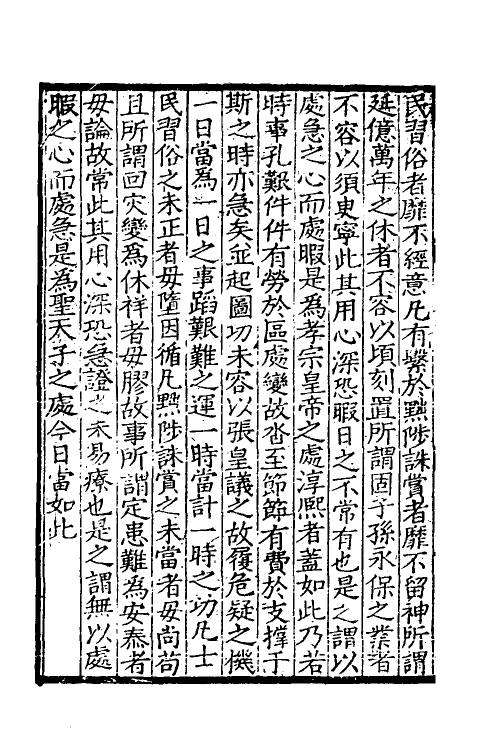 民習俗者靡不經意凡有繫於黜陟誅賞者靡不留神所謂
延億萬年之休者不容以頃刻置所謂固子孫永保之業者
不容以須臾寧此其用心深恐暇日之不常有也是之謂以
處急之心而處暇是為孝宗皇帝之處淳熙者蓋如此乃若
時事孔艱件件有勞於區處變故沓至節節有費於支撑于
斯之時亦急矣並起圖功未容以張皇議之故履危疑之機
一日當為一日之事蹈艱難之運一時當計一時之功凡士
民習俗之未正者毋墮因循凡黜陟誅賞之未當者毋尚苟
且所謂回灾變為休祥者毋膠故事所謂定患難為安泰者
毋論故常此其用心深恐急證之未易療也是之謂無以處
暇之心而處急是為聖天子之處今日當如此